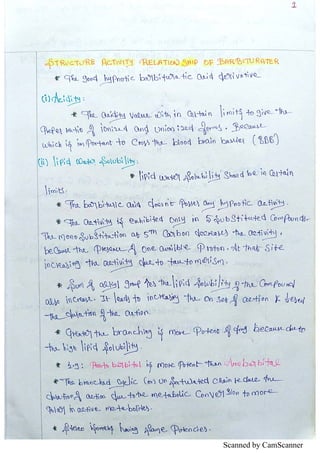 1
STRUCTURE ACTIVITY RELATIONSHIP OF BARBITURATES
* The good hypnotic barbituratic acid derivative
(i) Acidity:
* The acidity value with in certain limits to give the
Proper ratio of ionised and unionised forms. Because
which is important to Cross the blood brain barrier (BBB)
(ii) lipid water solubility:
* lipid water solubility should be in certain
limits.
* The barbituric acid doesn't poses any hypnotic activity.
* The activity is exhibited only in 5 substituted compounds.
The mono substitution at 5TH Carbon decreases the activity,
because the Presence of one acidible Proton. At that site
increasing the activity due to tautomerism.
* Sum of alkyl group yes the lipid solubility of the Compound
also increase. It leads to increasing the on set of action & based
the duration of the action.
* Greater the branching is more Potent of drug because due to
the high lipid solubility.
* Eg: Pentobarbitol is more Potent than Amobarbital
* The branched cyclic (or) unsaturated chain reduce the
duration of action due to the metabolic Conversion to more
Polar inactive metabolites.
* Stereo isomers having same Potencies.
Scanned by CamScanner